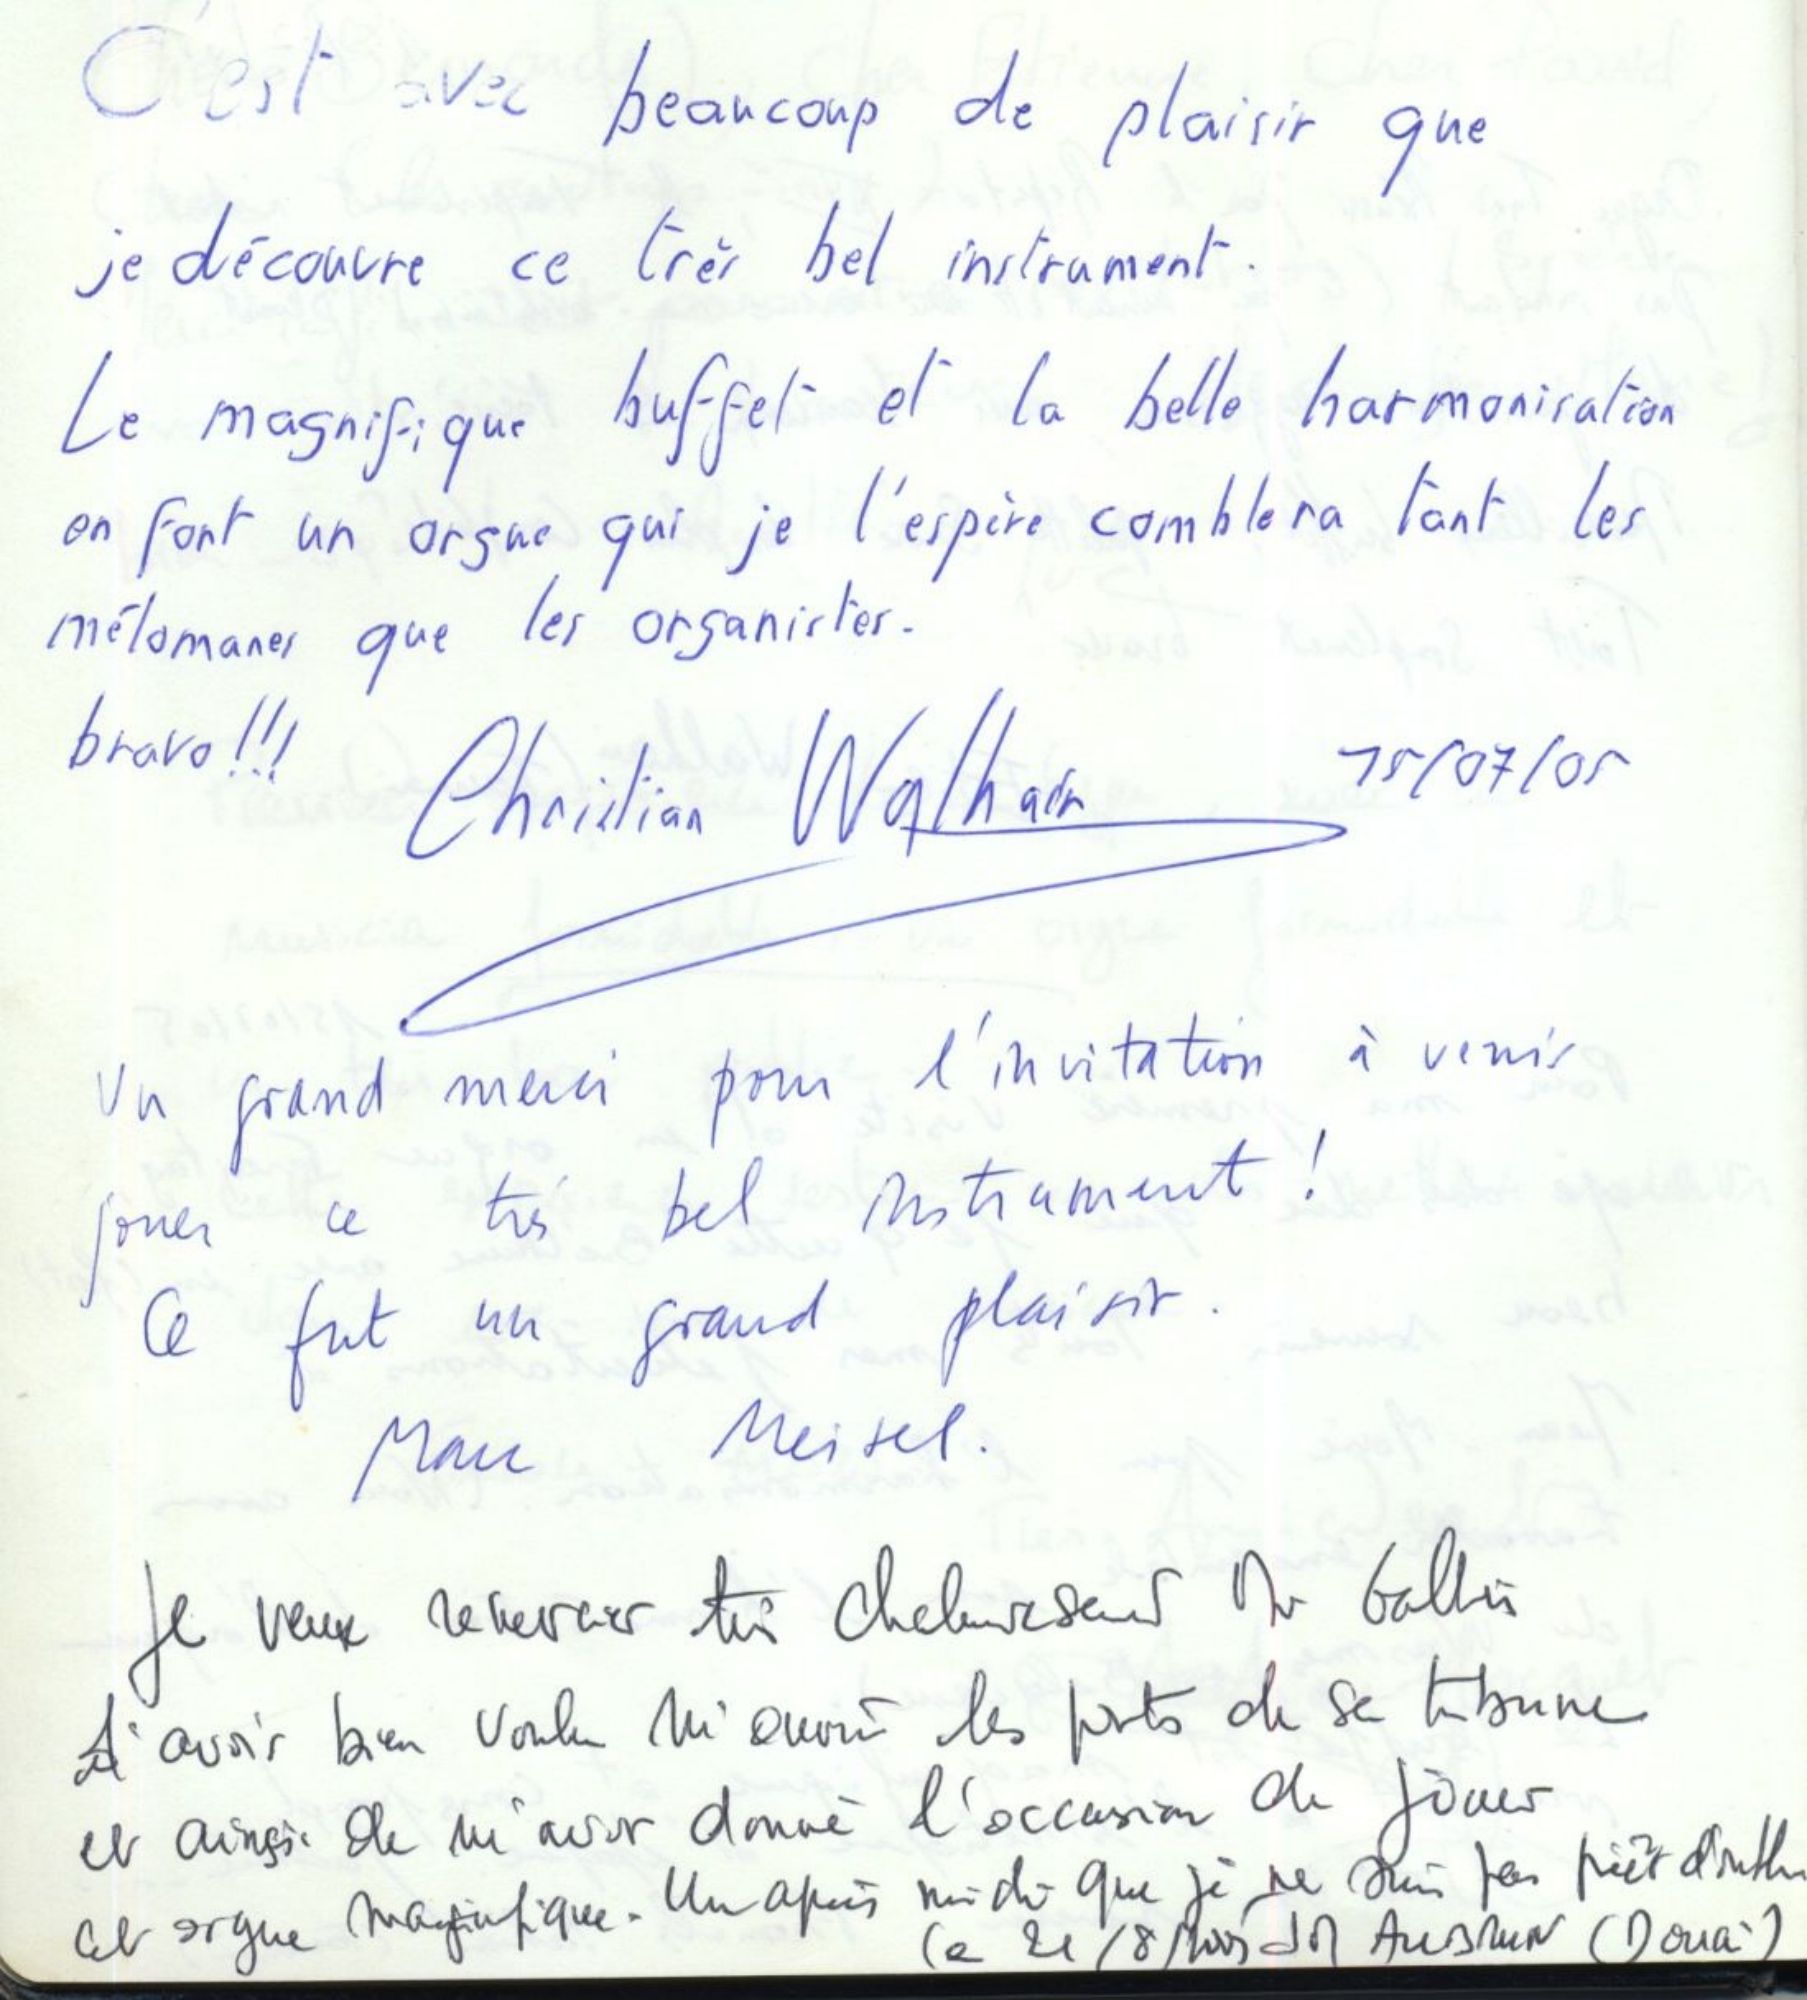 C'est avec beaucoup de plaisir que
je découvre ce très bel instrument.
Le magnifique buffet et la belle harmonisation
en font un orgue qui je l'espère comblera tant les
mélomanes que les organistes.
bravo!!! Christian Walhain 15/07/05
Un grand merci pour l'invitation à venir
jouer ce très bel instrument!
Ce fut un grand plaisir.
Marc Meisel.
Je veux remercier très chaleureusement Mr
d'avoir bien voulu m'ouvrir les portes de sa tribune
et ainsi de m'avoir donné l'occasion de jouer
cet orgue magnifique. Un après midi que je ne suis pas prêt d'oublier
Le 21/8/ (Douai)